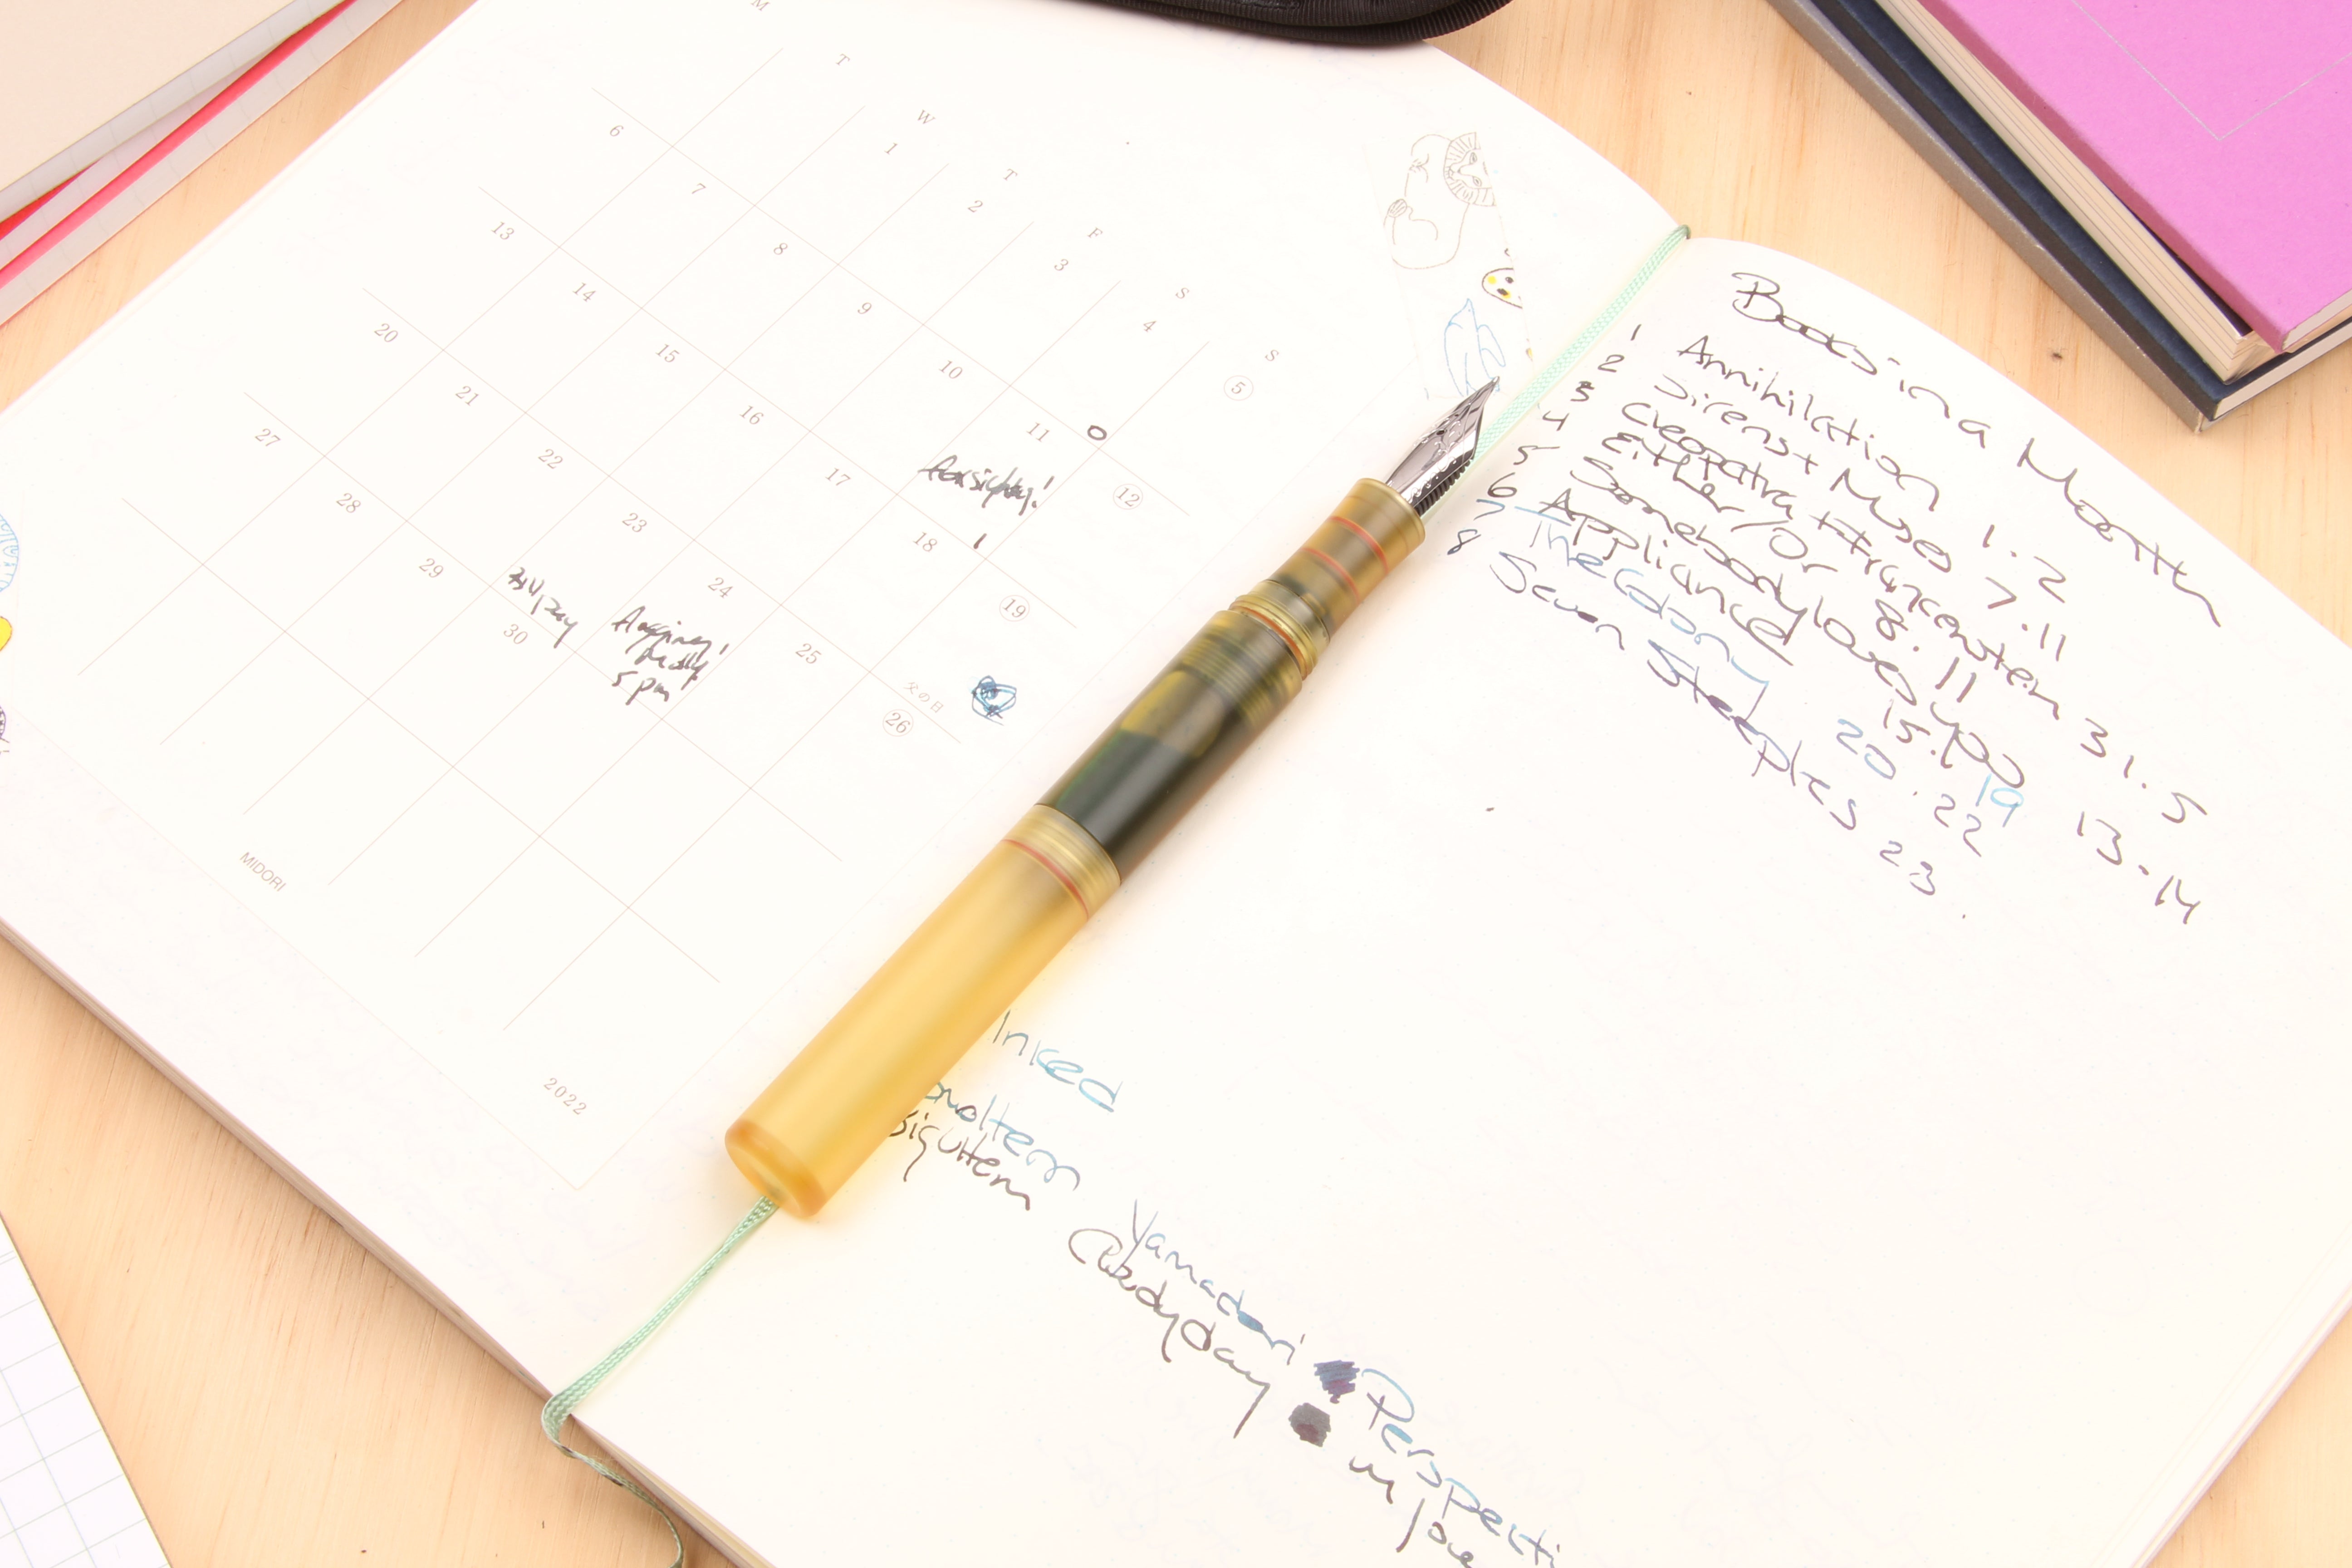 M T W T F S S
1 2 3 4 5
6 7 8 9 10 11 12
13 14 15 16 17 18 19
父の日
20 21 22 23 24 25 26
27 28 29 30
5pm
MIDORI
2022
Books in a Month
1 Annihilation 1.2
2 Sirens + Muses 7.11
3 Cleopatra + Frankenstein 31.5
4 Either/Or 8.11
5 Somebody loves you 13.14
6 Appliance 15. 19
7 The Colony 20.22
8 Seven Steeples 23.
Inked
Yamadori Perspecti
in love